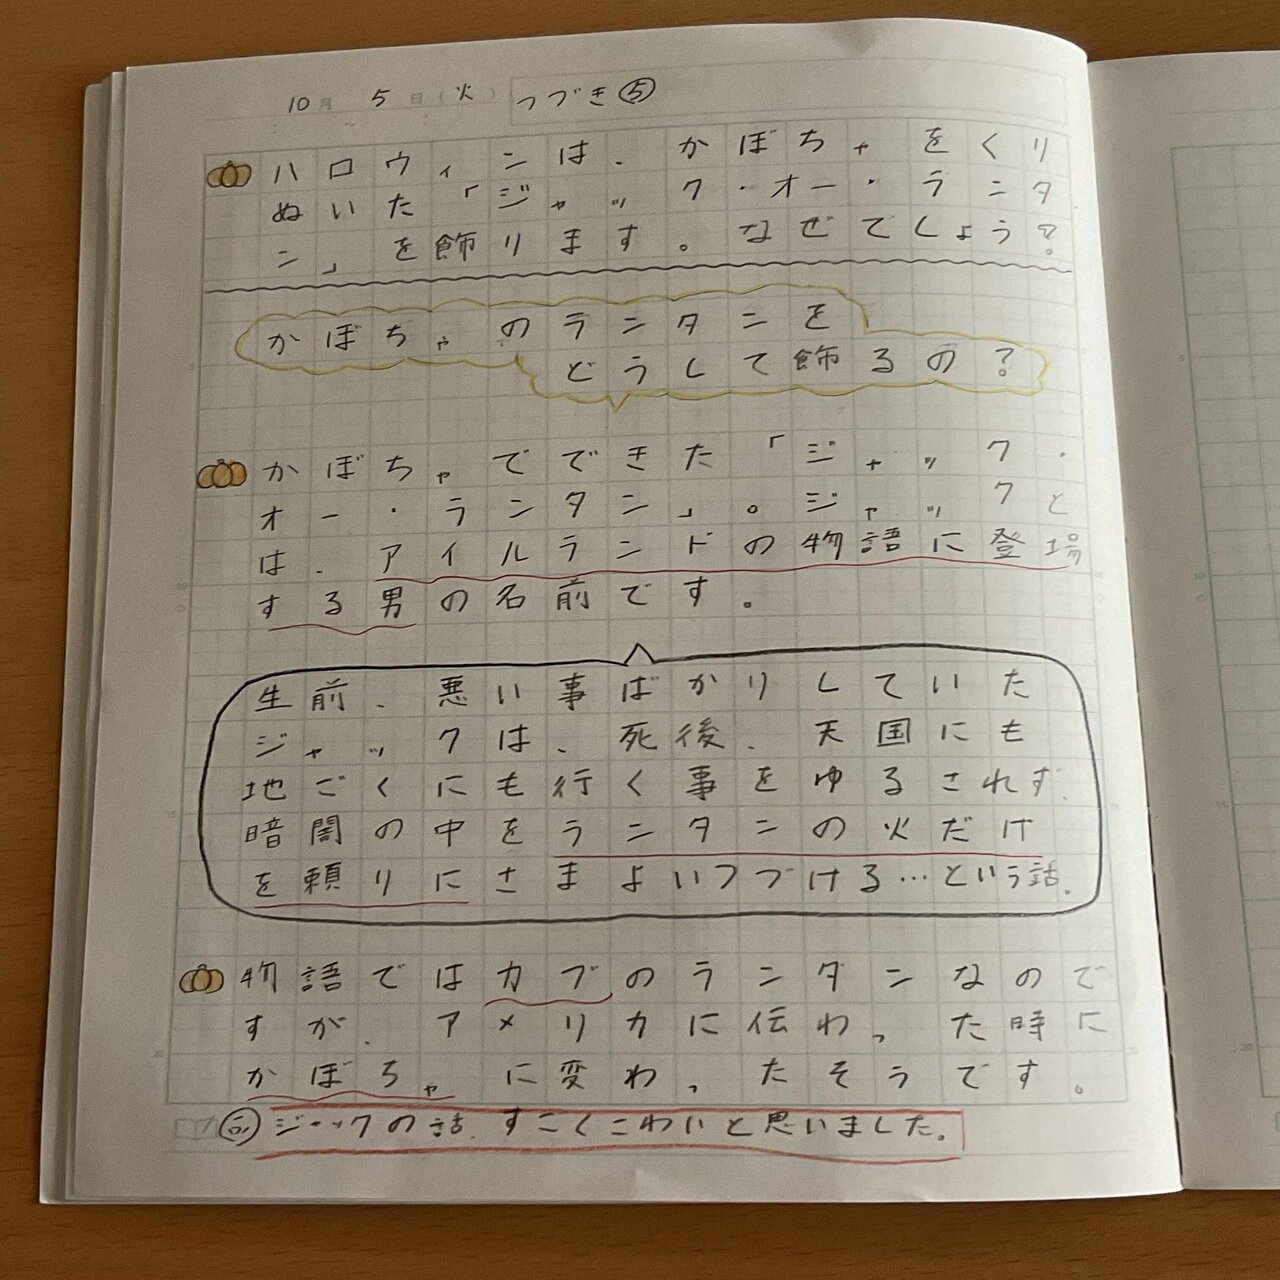 10月 5日(火) つづき⑤
ハロウィンは、かぼちゃをくり
ぬいた「ジャック・オー・ランタ
ン」を飾ります。なぜでしょう?
かぼちゃのランタンを
どうして飾るの?
かぼちゃでできた「ジャック・
オー・ランタン」。ジャックと
は、アイルランドの物語に登場
する男の名前です。
生前、悪い事ばかりしていた
ジャックは、死後、天国にも
地ごくにも行く事をゆるされず、
暗闇の中をランタンの火だけ
を頼りにさまよいつづける…という話。
物語ではカブのランダンなので
すが、アメリカに伝わった時に
かぼちゃに変わったそうです。
ジャックの話、すごくこわいと思いました。